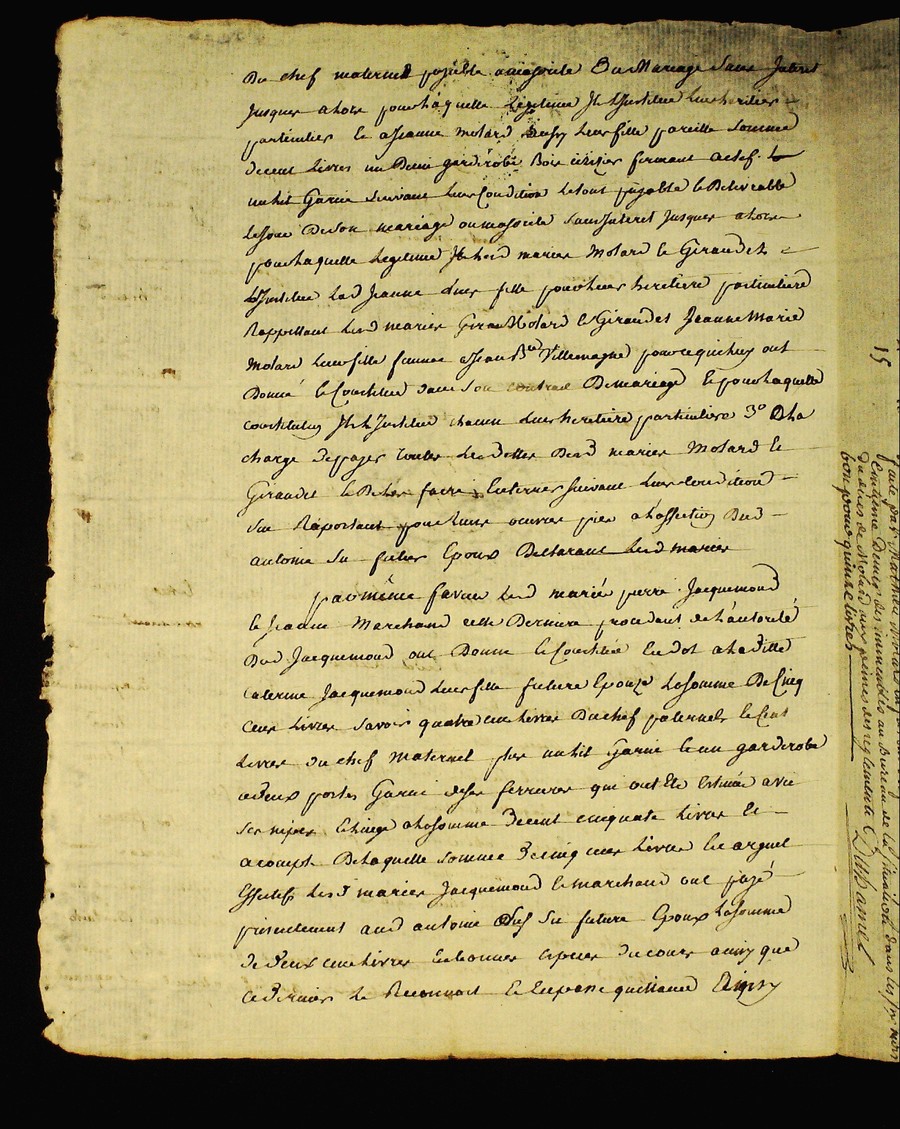 Du chef maternel payable a majorité Ou Mariage Sans Interet
Jusques alors pour laquelle Legitime Ils L'Instituent Leur heritier
particulier Et a Jeanne Molard aussy Leur fille pareille Somme
de cent Livres un Demi garderobe Bois cerisier fermant a clef Et
un Lit Garni Suivant Leur Condition Le tout payable Et Delivrable
Le Jour De Son mariage ou majorité Sans Interet Jusques alors
pour Laquelle Legitime mariés Molard Et Giraudet
L'Instituent Lad Jeanne Leur fille pour Leur heretiere particuliere
Rappellant Lesd mariés Molard Et Giraudet Jeanne Marie
Molard Leur fille femme a Jean Bte Villemagne pour ce qui Luy ont
Donné Et Constitué dans Son contrat De mariage Et pour Laquelle
constitution Ils L'Instituent Leur heretiere particuliere 3° a La
charge de payer toutes Les dettes Desd mariés Molard Et
Giraudet Et De Les faire Enterrer Suivant Leur Condition
Se Raportant pour Leurs oeuvres pies a L'affection Dud
antoine Du futur Epoux Declarant Lesd mariés
par même faveur Lesd mariés pierre Jacquemond
Et Jeanne Marchand cette Derniere procedant de L'autorité
Dud Jacquemond ont Donné Et Constitué En dot a Ladite
Caterine Jacquemond Leur fille future Epouze La somme De Cinq
Cens Livres Savoir quatre cens Livres Du chef paternel Et Cent
Livres du chef Maternel plus un Lit Garni Et un garderobe
a deux portes Garni de Ses ferrures qui ont Eté Estimés avec
Ses nipes Et Linge a La somme De cent cinquante Livres Et
a compte De Laquelle Somme De cinq cens Livres En argent
Effectif Lesd mariés Jacquemond Et Marchand ont payé
presentement aud antoine Du future Epoux La somme
De Deux cens Livres En bonnes especes du cours ainsy que
Ce Dernier Le Reconnoit Et En passe quittance
15
Centieme Denier des immeubles au Bureau de
bon pour quinze Livres
Duhamel